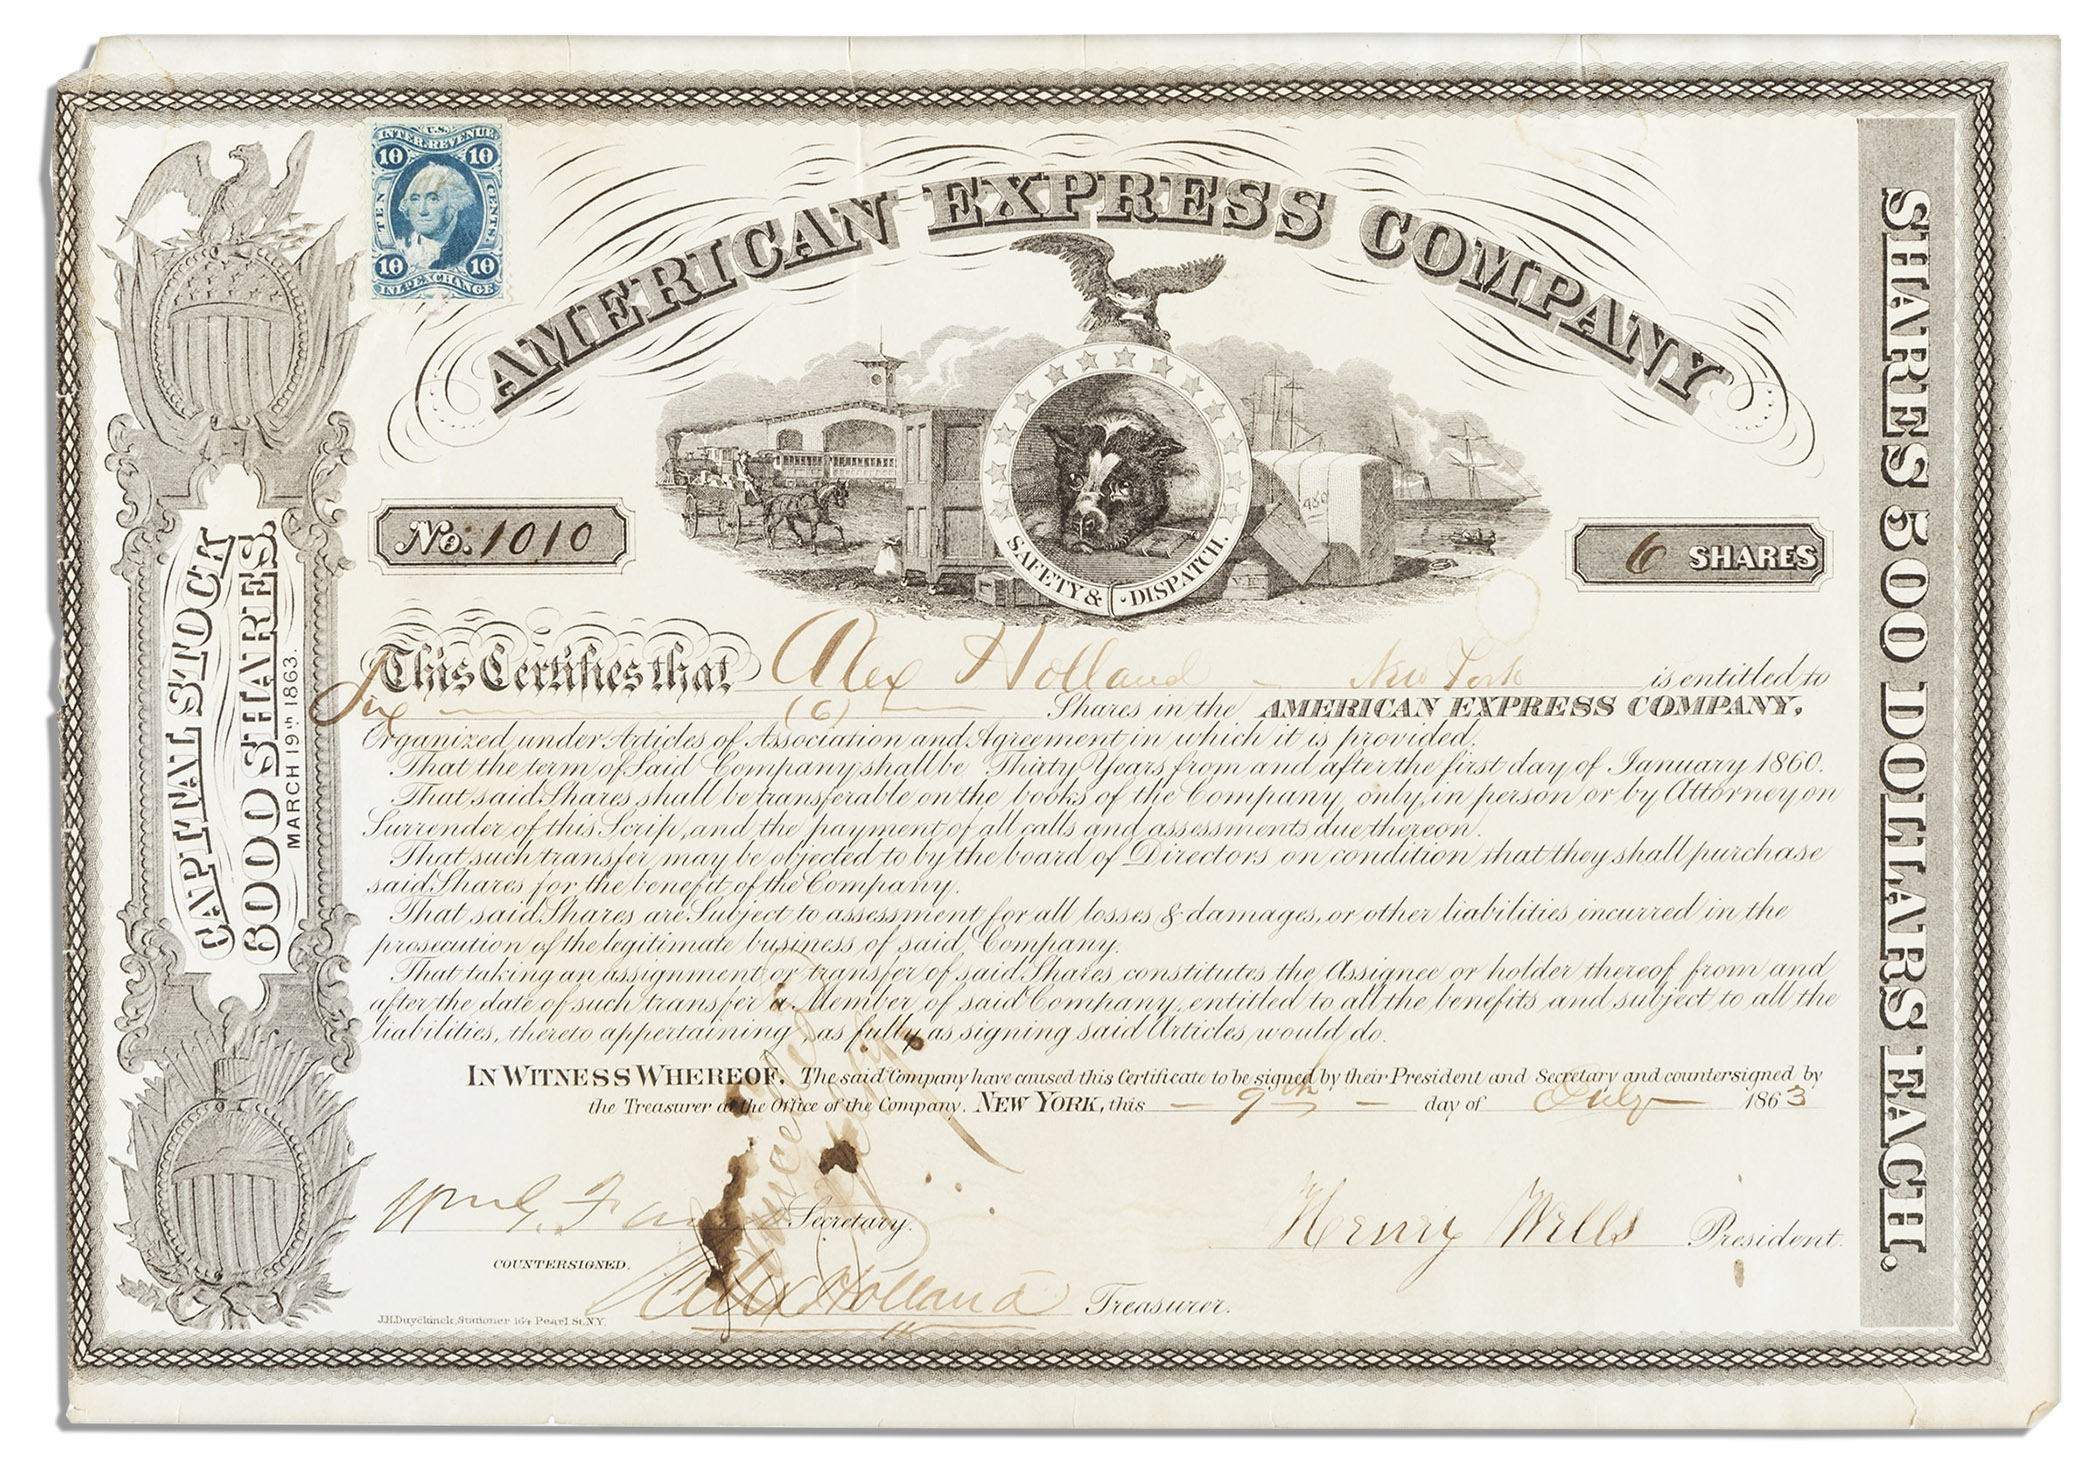 U.S.
INTER. REVENUE
10 10
TEN CENTS.
10 10
INL. EXCHANGE
AMERICAN EXPRESS COMPANY
SAFETY & DISPATCH.
480
No. 1010
6 SHARES
CAPITAL STOCK
6000 SHARES.
MARCH 19th 1863.
SHARES 500 DOLLARS EACH.
This Certifies that Alex Holland - New York is entitled to
Six (6) Shares in the AMERICAN EXPRESS COMPANY,
Organized under Articles of Association and Agreement in which it is provided.
That the term of Said Company shall be Thirty Years from and after the first day of January 1860.
That said Shares shall be transferable on the books of the Company only, in person or by Attorney on
Surrender of this Scrip, and the payment of all calls and assessments due thereon.
That such transfer may be objected to by the board of Directors on condition that they shall purchase
said Shares for the benefit of the Company.
That said Shares are Subject to assessment for all losses & damages, or other liabilities incurred in the
prosecution of the legitimate business of said Company.
That taking an assignment or transfer of said Shares constitutes the Assignee or holder thereof from and
after the date of such transfer a Member of said Company, entitled to all the benefits and subject to all the
liabilities, thereto appertaining, as fully as signing said Articles would do.
IN WITNESS WHEREOF, The said Company have caused this Certificate to be signed by their President and Secretary and countersigned by
the Treasurer at the Office of the Company. NEW YORK, this - 9th - day of July 1863
Secretary.
Henry Wells President.
COUNTERSIGNED.
Alex Holland Treasurer.
J.H. Duyckinck, Stationer 164 Pearl St. N.Y.
Cancelled